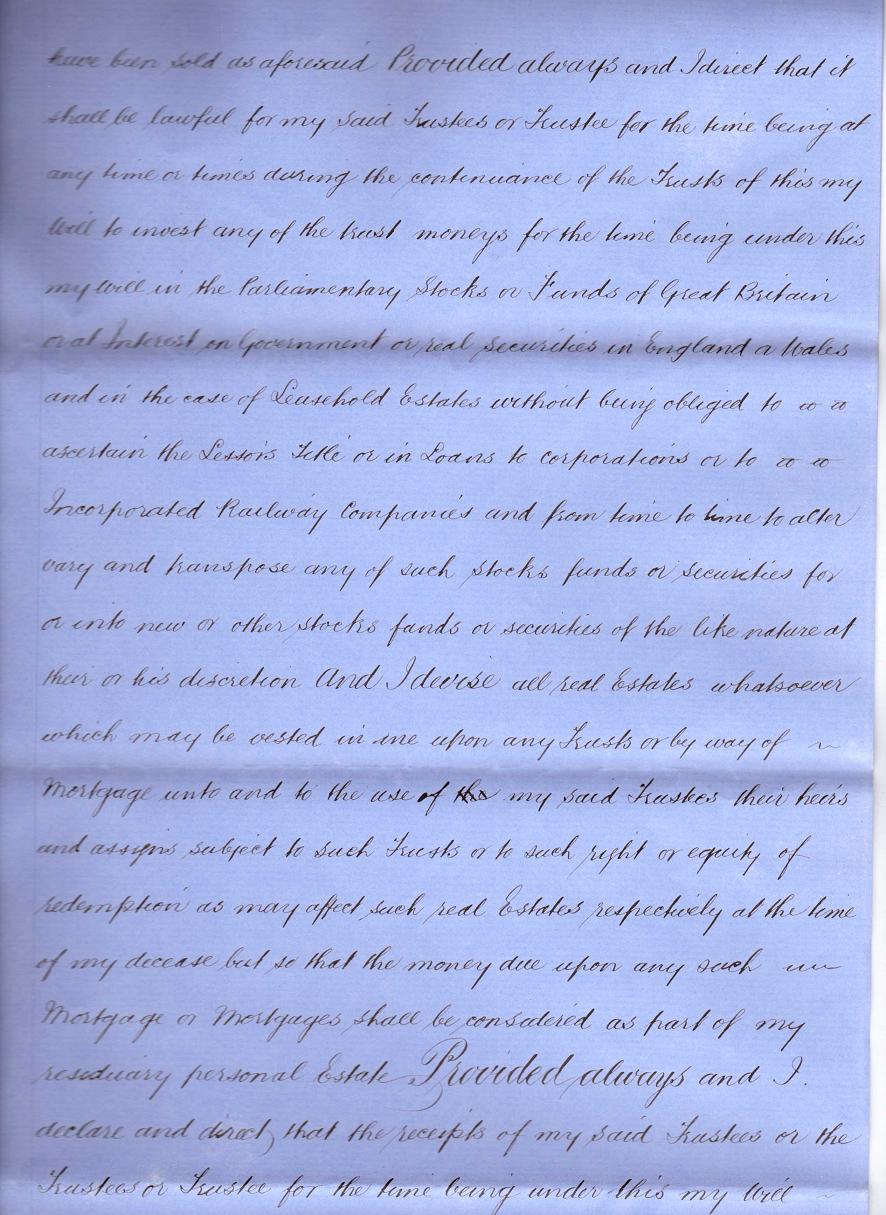 have been sold as aforesaid Provided always and I direct that it
shall be lawful for my said Trustees or Trustee for the time being at
any time or times during the continuance of the Trusts of this my
Will to invest any of the trust moneys for the time being under this
my Will in the Parliamentary Stocks or Funds of Great Britain
or at Interest on Government or real securities in England or Wales
and in the case of Leasehold Estates without being obliged to
ascertain the Lessors Title or in Loans to corporations or to
Incorporated Railway Companies and from time to time to alter
vary and transpose any of such stocks funds or securities for
or into new or other stocks funds or securities of the like nature at
their or his discretion And I devise all real Estates whatsoever
which may be vested in me upon any Trusts or by way of
Mortgage unto and to the use of the my said Trustees their heirs
and assigns subject to such Trusts or to such right or equity of
redemption as may affect such real Estates respectively at the time
of my decease but so that the money due upon any such
Mortgage or Mortgages shall be considered as part of my
residuary personal Estate Provided always and I.
declare and direct that the receipts of my said Trustees or the
Trustees or Trustee for the time being under this my Will